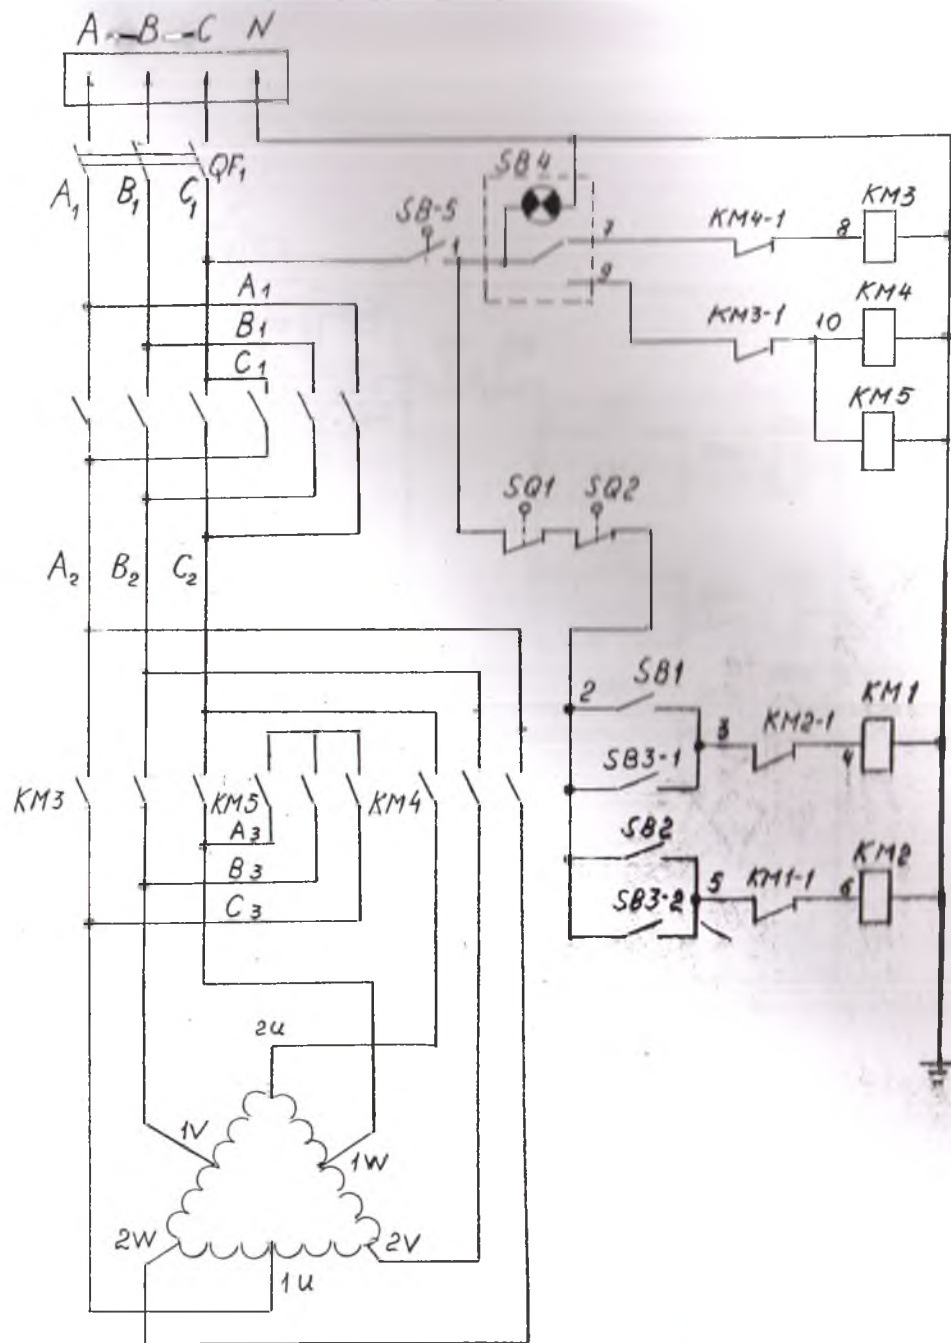 A B C N
QF1
A1 B1 C1
SB-5
1
SB4
7
9
KM4-1
8
KM3
KM3-1
10
KM4
KM5
A1
B1
C1
A2 B2 C2
SQ1 SQ2
2
SB1
SB3-1
3
KM2-1
4
KM1
SB2
SB3-2
5
KM1-1
6
KM2
KM3
KM5
KM4
A3
B3
C3
2U
1V
1W
2W
2V
1U